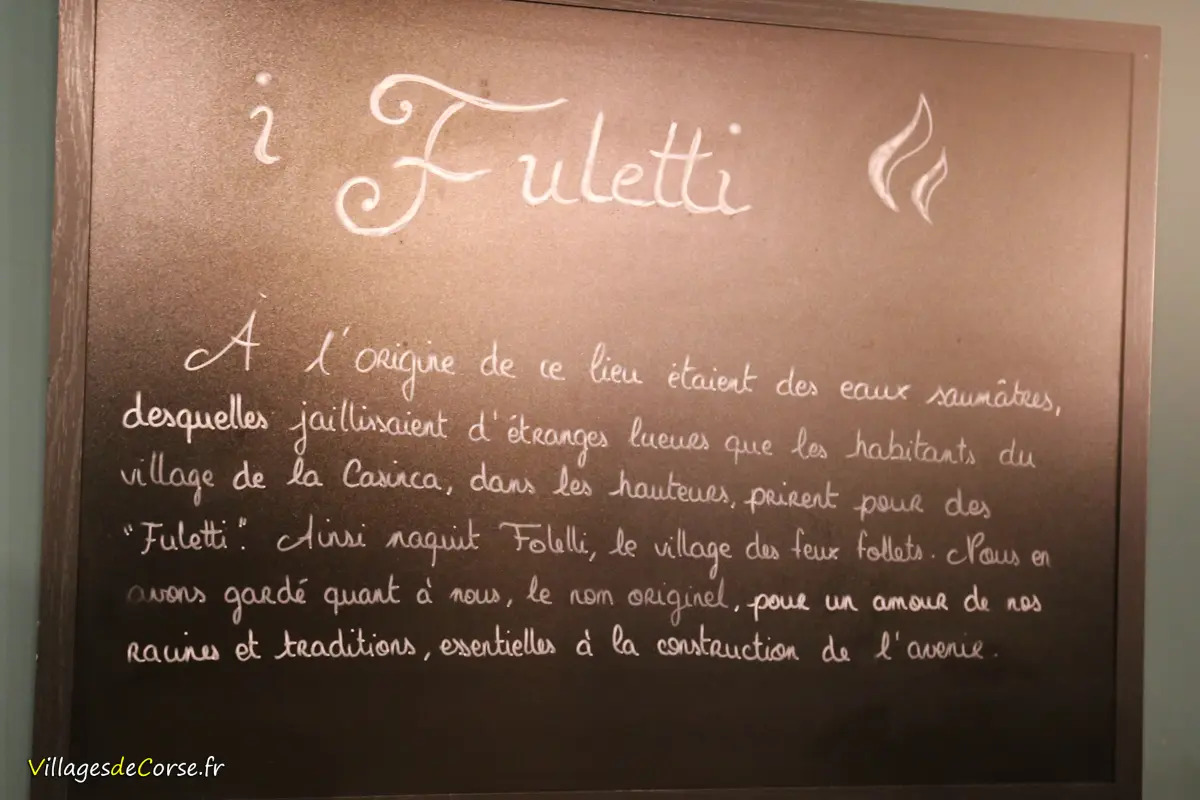 i Fuletti
À l'origine de ce lieu étaient des eaux saumâtres,
desquelles jaillissaient d'étranges lueurs que les habitants du
village de la Casinca, dans les hauteurs, prirent pour des
"Fuletti". Ainsi naquit Folelli, le village des feux follets. Nous en
avons gardé quant à nous, le nom originel, pour un amour de nos
racines et traditions, essentielles à la construction de l'avenir.
VillagesdeCorse.fr